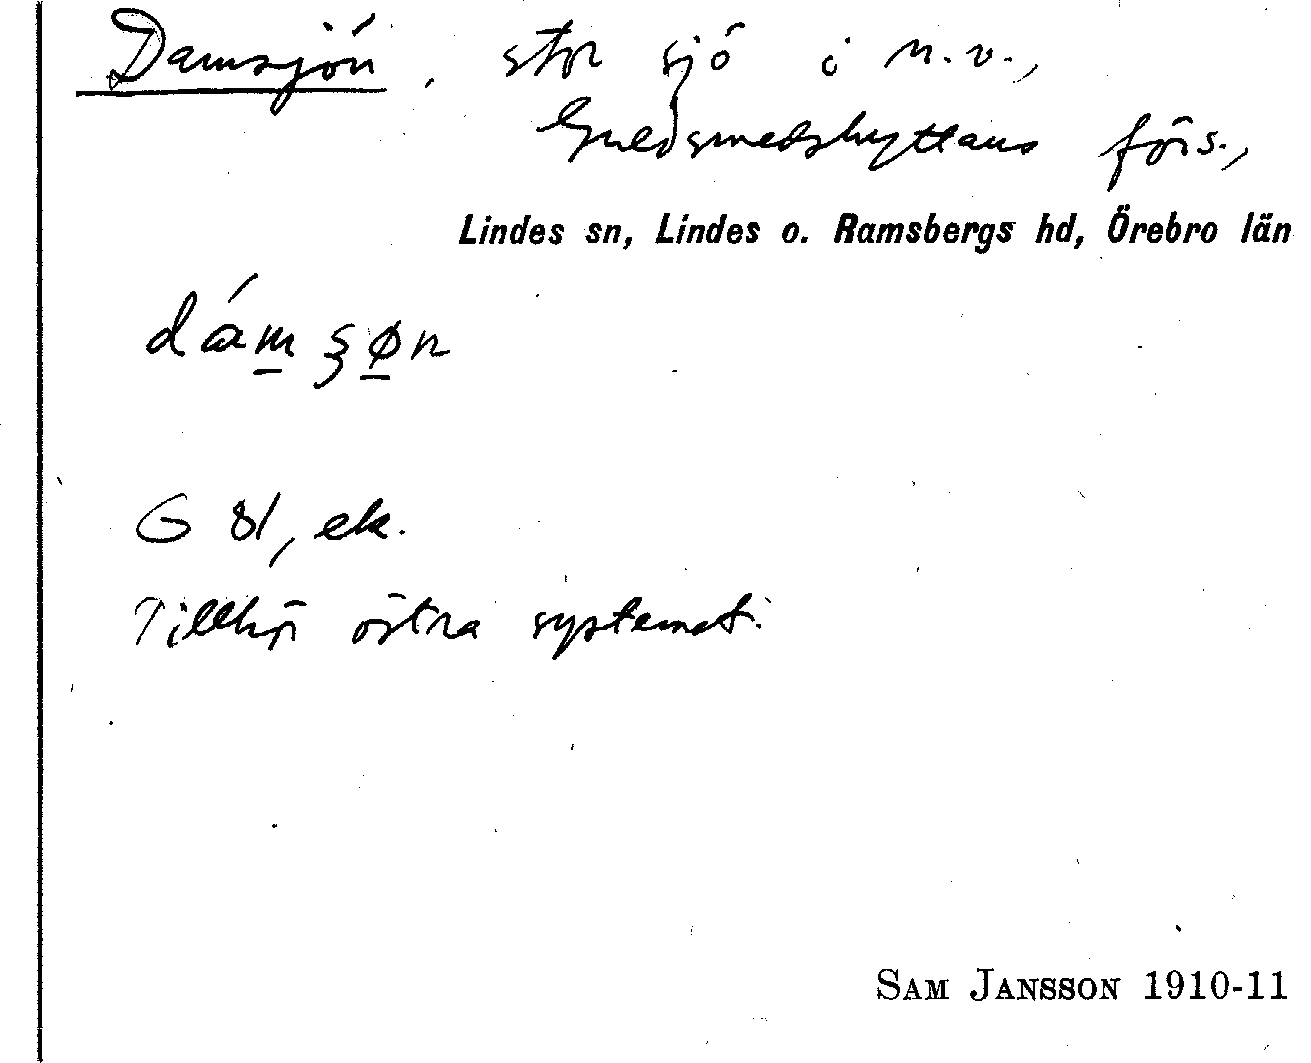 Damsjön, stor sjö i n.v.,
Guldsmedshyttans förs.,
Lindes sn, Lindes o. Ramsbergs hd, Örebro län
G 81, ek.
Tillhör östra systemet.
SAM JANSSON 1910-11